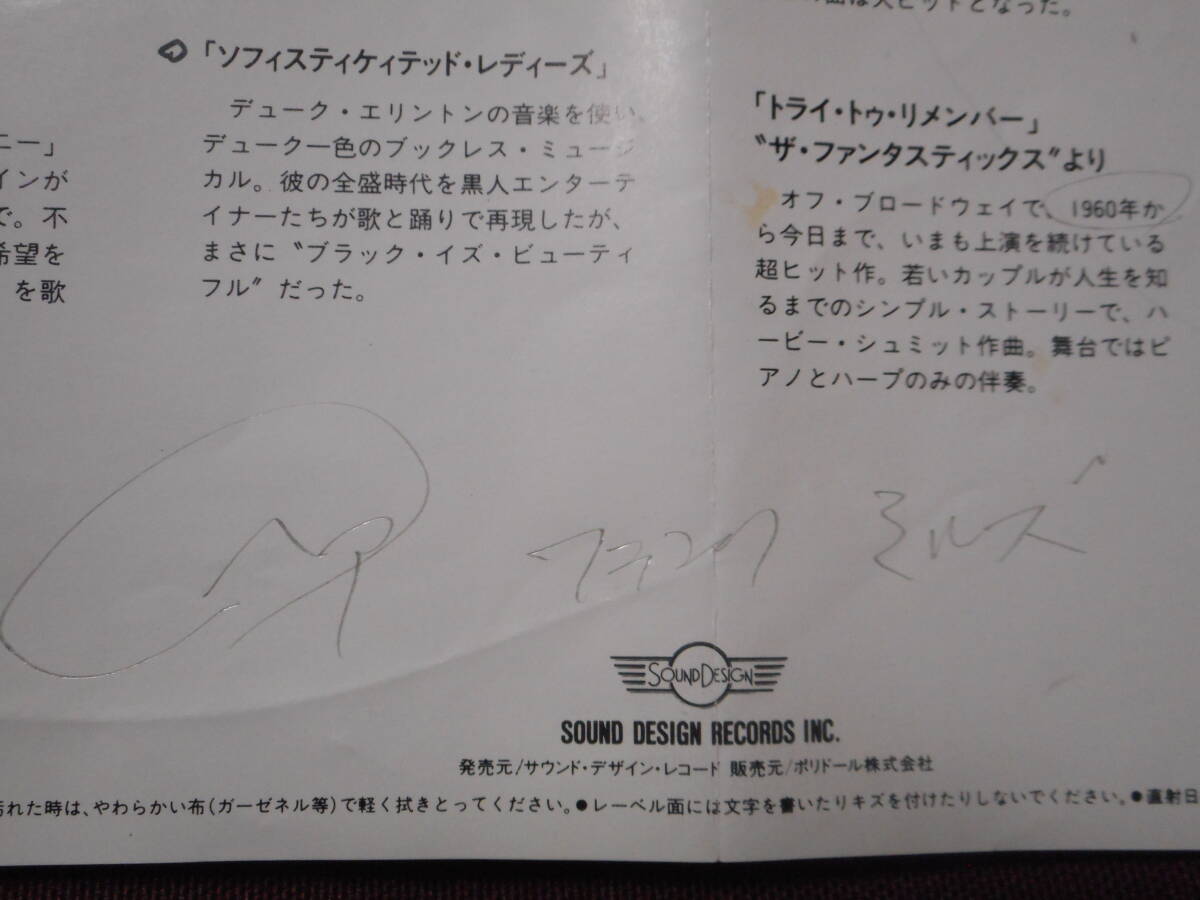 ニー」
インが
で。不
希望を
を歌
「ソフィスティケィテッド・レディーズ」
デューク・エリントンの音楽を使い、
デューク一色のブックレス・ミュージ
カル。彼の全盛時代を黒人エンターテ
イナーたちが歌と踊りで再現したが、
まさに〝ブラック・イズ・ビューティ
フル〟だった。
面は大ヒットとなった。
「トライ・トゥ・リメンバー」
〝ザ・ファンタスティックス〟より
オフ・ブロードウェイで、1960年か
ら今日まで、いまも上演を続けている
超ヒット作。若いカップルが人生を知
るまでのシンプル・ストーリーで、ハ
ービー・シュミット作曲。舞台ではピ
アノとハープのみの伴奏。
ミルズ
SOUNDDESIGN
SOUND DESIGN RECORDS INC.
発売元/サウンド・デザイン・レコード 販売元/ポリドール株式会社
汚れた時は、やわらかい布(ガーゼネル等)で軽く拭きとってください。●レーベル面には文字を書いたりキズを付けたりしないでください。●直射日